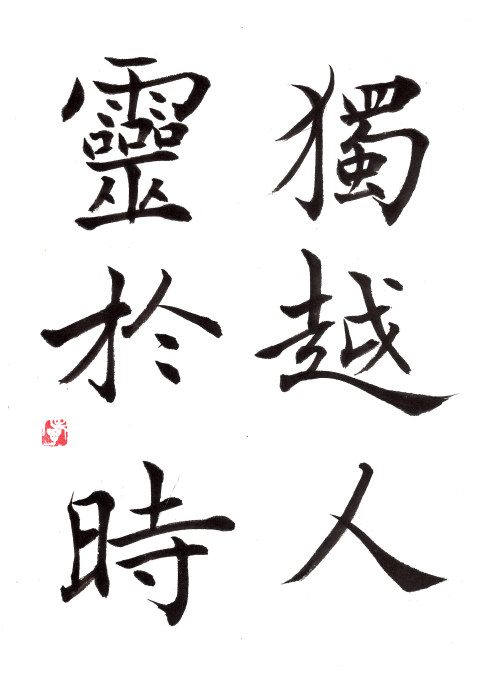 獨越人
靈於時